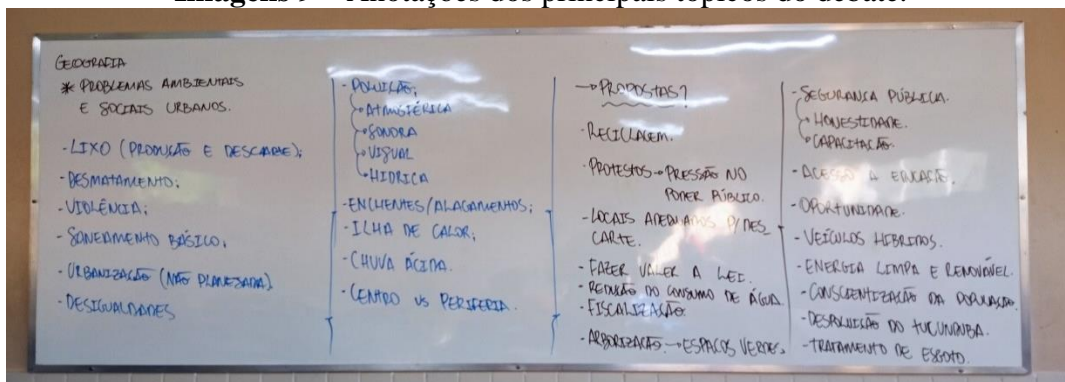 Imagens 9 – Anotações dos principais tópicos do debate.
GEOGRAFIA
* PROBLEMAS AMBIENTAIS
E SOCIAIS URBANOS.
- LIXO (PRODUÇÃO E DESCARTE);
- DESMATAMENTO;
- VIOLÊNCIA;
- SANEAMENTO BÁSICO;
- URBANIZAÇÃO (NÃO PLANEJADA)
- DESIGUALDADES
- POLUIÇÃO;
→ ATMOSFÉRICA
→ SONORA
→ VISUAL
→ HIDRICA
- ENCHENTES/ALAGAMENTOS;
- ILHA DE CALOR;
- CHUVA ÁCIDA.
- CENTRO VS PERIFERIA.
→ PROPOSTAS?
- RECICLAGEM.
- PROTESTOS → PRESSÃO NO
PODER PÚBLICO.
- LOCAIS ADEQUADOS P/ DES_
CARTE.
- FAZER VALER A LEI.
- REDUÇÃO DO CONSUMO DE ÁGUA.
- FISCALIZAÇÃO.
- ARBORIZAÇÃO. → ESPAÇOS VERDES.
- SEGURANÇA PÚBLICA.
→ HONESTIDADE.
→ CAPACITAÇÃO.
- ACESSO A EDUCAÇÃO.
- OPORTUNIDADE.
- VEÍCULOS HIBRIDOS.
- ENERGIA LIMPA E RENOVÁVEL.
- CONSCIENTIZAÇÃO DA POPULAÇÃO.
- DESPOLUIÇÃO DO TUCUNDUBA.
- TRATAMENTO DE ESGOTO.